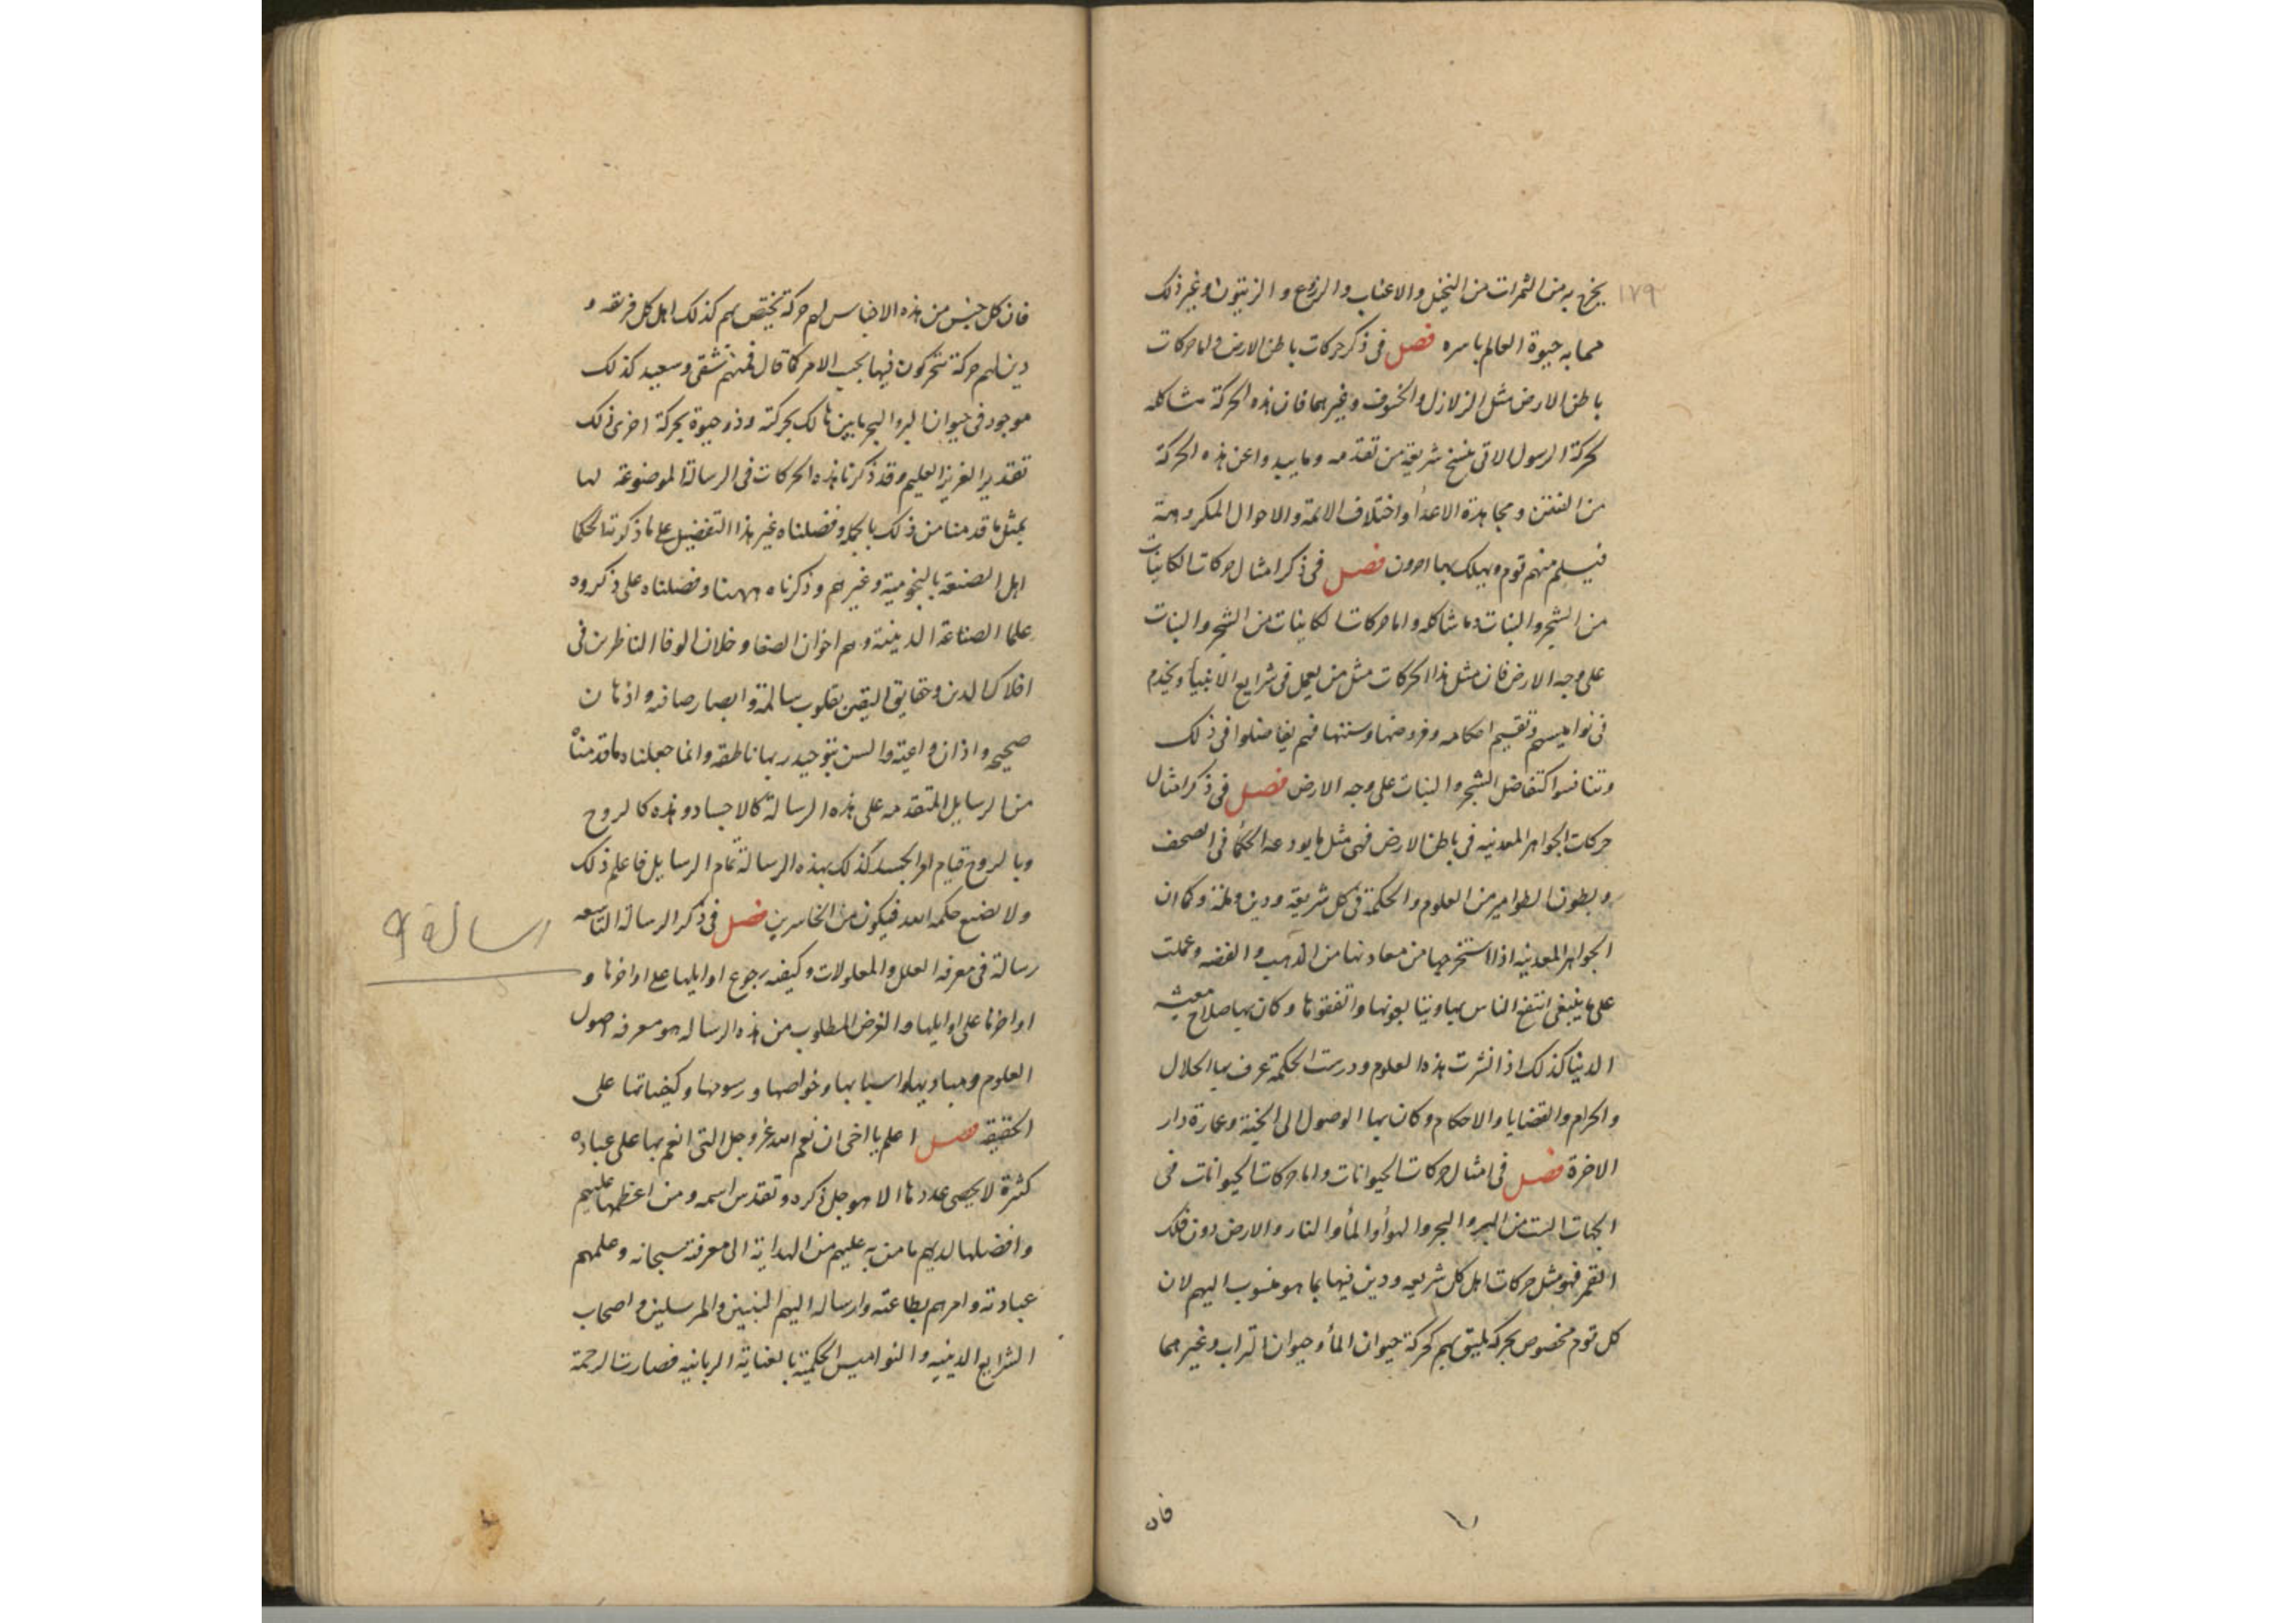 ١٧٩
يخرج به من الثمرات من النخيل والاعناب والزروع والزيتون وغير ذلك
مما به حيوة العالم باسره فصل فى ذكر حركات باطن الارض واما حركات
باطن الارض مثل الزلازل والخسوف وغيرهما فان هذه الحركة مشاكله
لحركة الرسول الاتى بنسخ شريعة من تقدمه وما يبدوا عن هذه الحركة
من الفتن ومجاهدة الاعدأ واختلاف الائمة والاحوال المكروهة
فيسلم منهم قوم ويهلك بها اخرون فصل فى ذكر امثال حركات الكاينات
من الشجر والنبات وما شاكله واما حركات الكاينات من الشجر والنبات
على وجه الارض فان مثل هذا الحركات مثل من يعمل فى شرايع الانبيأ ويخدم
فى نواميسهم وتقسيم احكامه وفروضها وسننها فهم يتفاضلوا فى ذلك
وتنافسوا كتفاضل الشجر والنبات على وجه الارض فصل فى ذكر امثال
حركات الجواهر المعدنيه فى باطن الارض فهى مثل ما يودعه الحكمأ فى الصحف
وبطون الطوامير من العلوم والحكمة فى كل شريعة ودين وملة وكما ان
الجواهر المعدنيه اذا استخرجها من معادنها من الذهب والفضه وعملت
على ما ينبغى انتفع الناس بها ويتبايعونها واتفقوها وكان بها صلاح معيشه
الدنيا كذلك اذا نشرت هذه العلوم ودرست الحكمة عرف بها الحلال
والحرام والقضايا والاحكام وكان بها الوصول الى الجنة وعمارة دار
الاخرة فصل فى امثال حركات الحيوانات واما حركات الحيوانات فى
الجهات الست من البر والبحر والهوأ والمأ والنار والارض دون فلك
القمر فهو مثل حركات اهل كل شريعه ودين فيها بما هو منسوب اليهم لان
كل قوم مخصوص بحركة يليق بهم كحركة حيوان المأ وحيوان التراب وغيرهما
فان
فان كل جنس من هذه الاجناس لهم حركة تختص بهم كذلك اهل كل فرقة و
دين لهم حركة تتحركون فيها بحسب الامر كما قال فمنهم شقى وسعيد كذلك
موجود فى حيوان البر والبحر ما بين هالك بحركته وذو حيوة بحركة اخرى ذلك
تقدير العزيز العليم وقد ذكرنا هذه الحركات فى الرسالة الموضوعة لها
بمثل ما قدمنا من ذلك بالجملة وفصلناه غير هذا التفصيل على ما ذكرته الحكما
اهل الصنعة بالنجومية وغيرهم وذكرناه ههنا وفصلناه على ذكروه
علما الصناعة الدينية وهم اخوان الصفا وخلان الوفا الناظرين فى
افلاك الدين وحقايق اليقين بقلوب سالمة وابصار صافيه واذهان
صحيحه واذان واعية والسن بتوحيد ربها ناطقه وانما جعلناه ما قدمناه
من الرسايل المتقدمه على هذه الرسالة كالاجساد وهذه كالروح
وبالروح قيام امر الجسد كذلك بهذه الرسالة تمام الرسايل فاعلم ذلك
ولا تضيع حكمه الله فيكون من الخاسرين فصل فى ذكر الرسالة التاسعه
رسالة ٩
رسالة فى معرفة العلل والمعلولات وكيفيه رجوع اوايلها على اواخرها و
اواخرها على اوايلها والغرض المطلوب من هذه الرساله هو معرفه اصول
العلوم ومباديها واسبابها وخواصها ورسومها وكيفياتها على
الحقيقه فصل اعلم يا اخى ان نعم الله عز وجل التى انعم بها على عباده
كثيرة لا يحصى عددها الا هو جل ذكره وتقدس اسمه ومن اعظمها عليهم
وافضلها لديهم ما من به عليهم من الهداية الى معرفته سبحانه وعلمهم
عبادته وامرهم بطاعته وارساله اليهم النبيين والمرسلين واصحاب
الشرايع الدينيه والنواميس الحكمية بالعناية الربانيه فصارت الرحمة